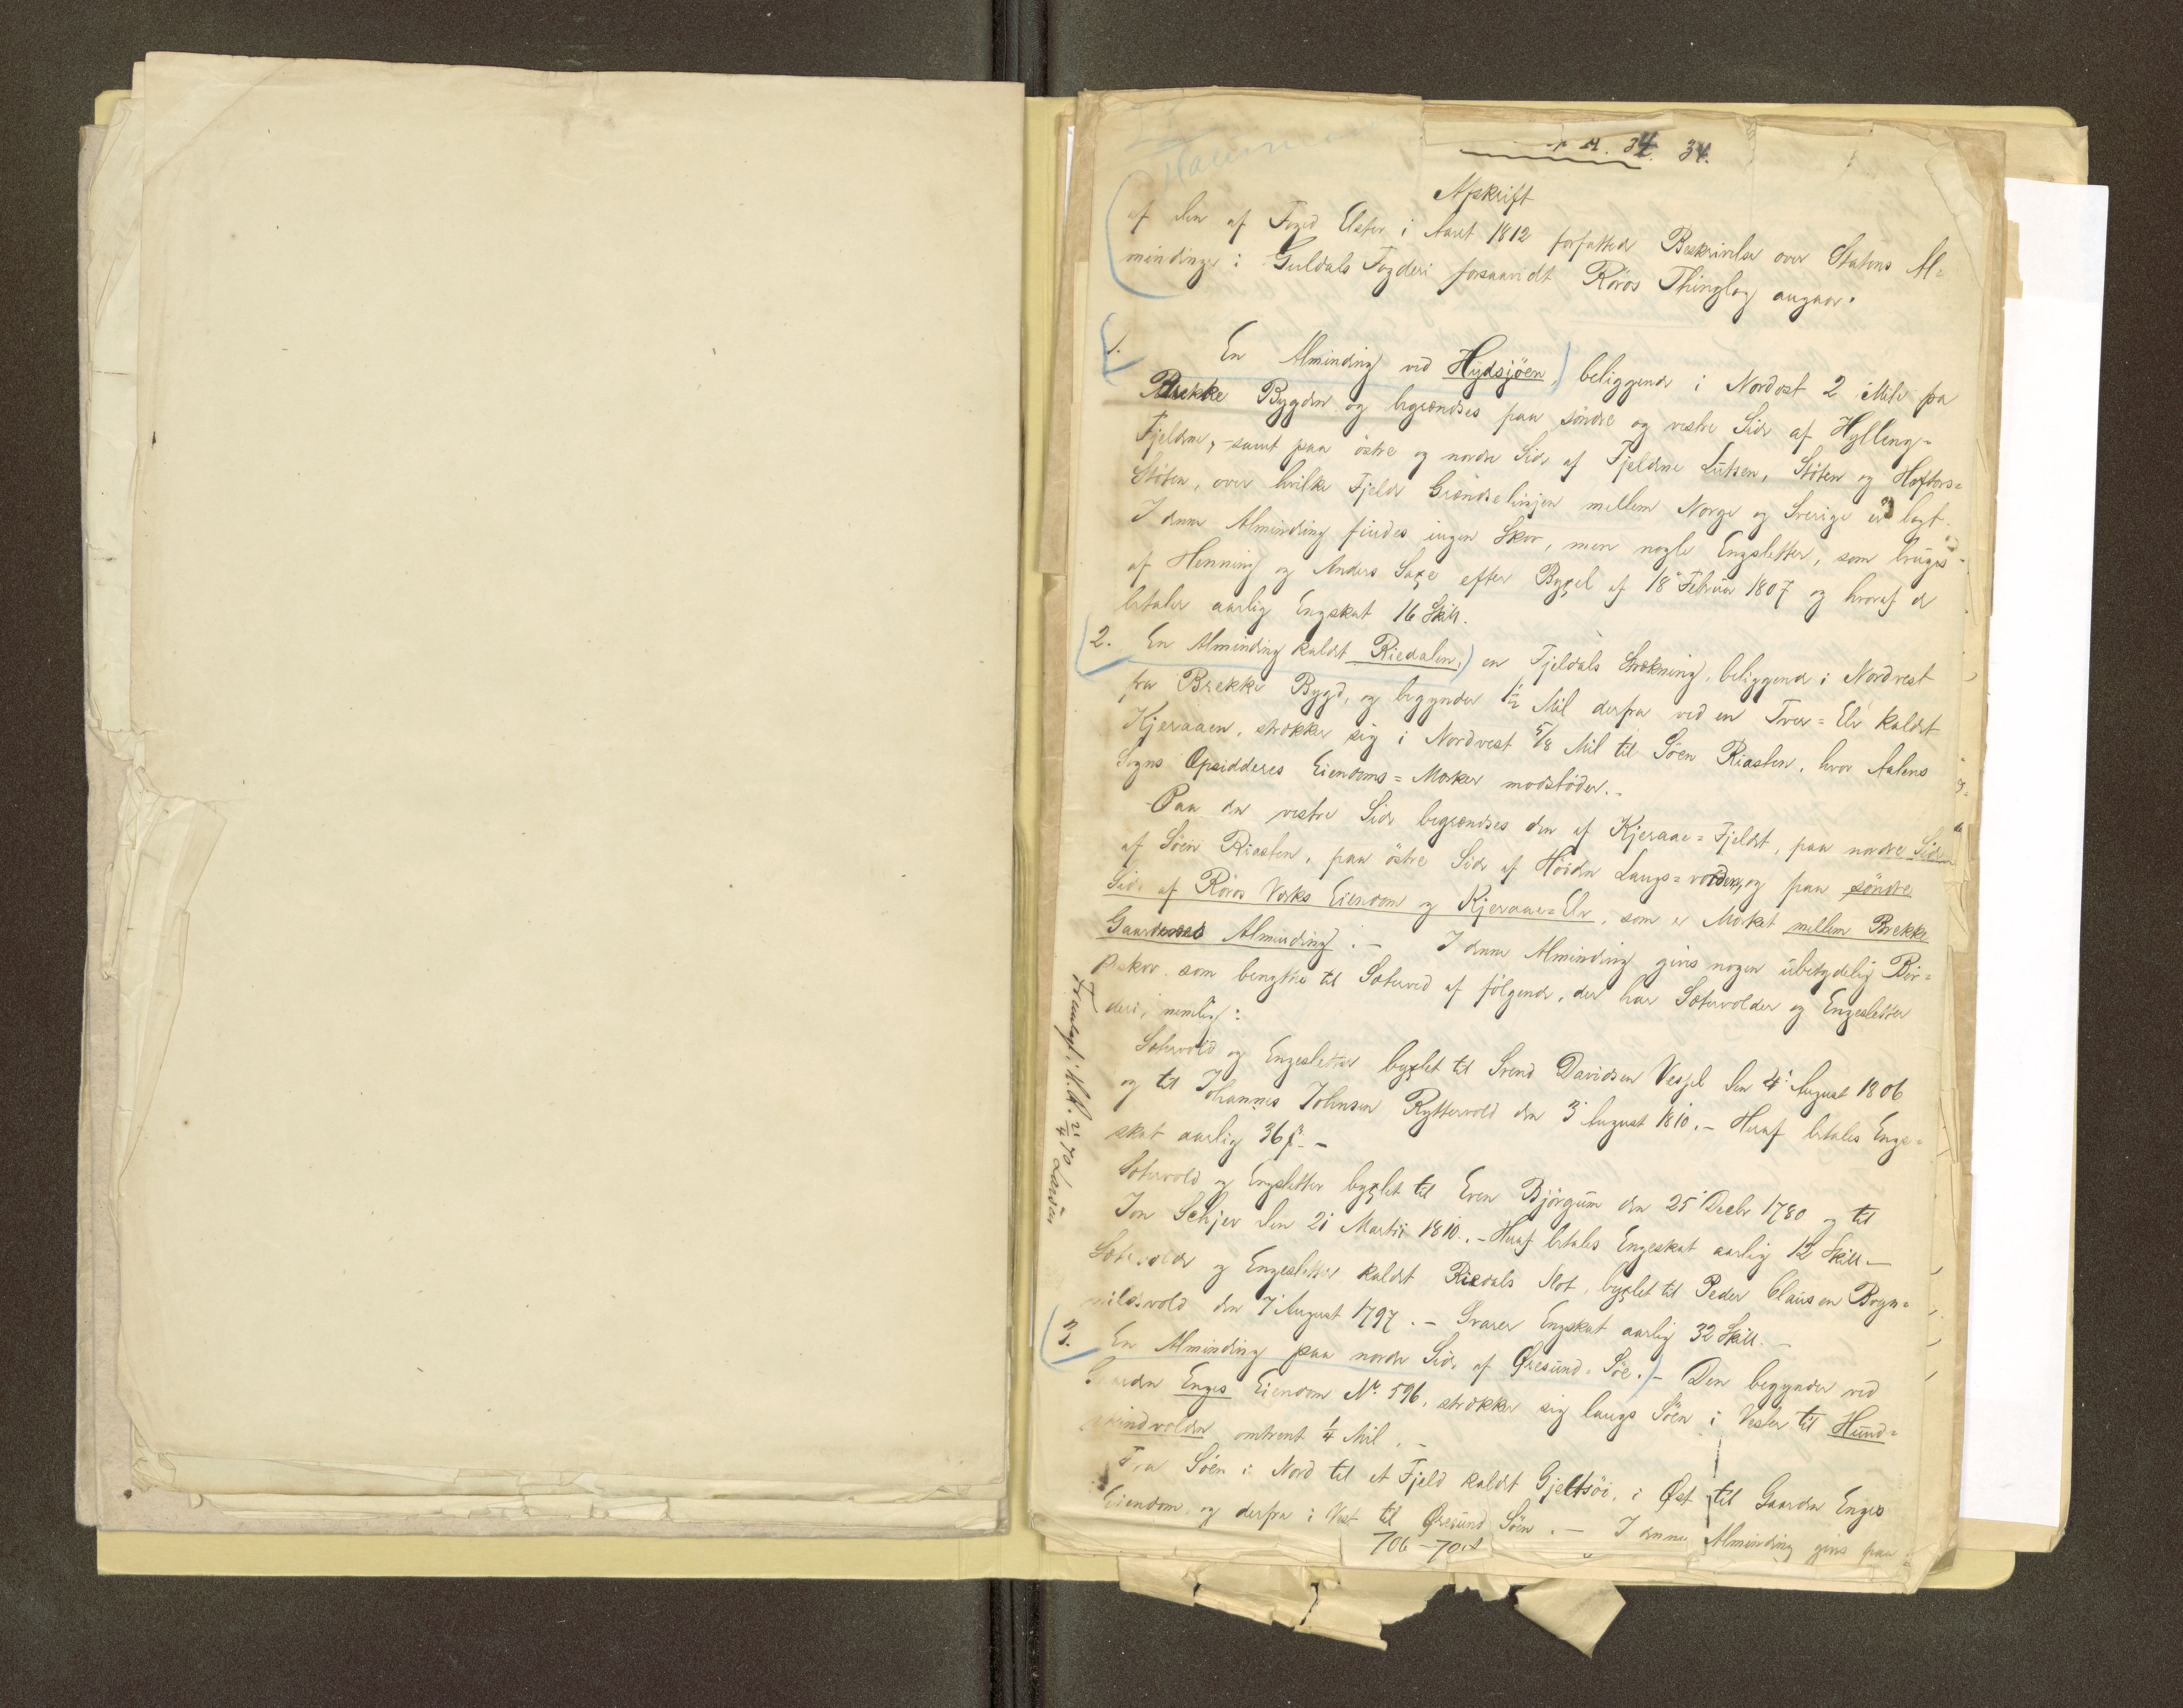 34. 34.
Afskrift
af den af Foged Elster i Aaret 1812 forfattede Beskrivelse over Statens Al=
mindinger i Guldals Fogderi forsaavidt Röros Thinglag angaar.
1. En Alminding ved Hydsjöen, beliggende i Nordost 2 Mile fra
Brekke Bygden og begrændses paa söndre og vestre Side af Hylling=
Fjeldene, samt paa östre og nordre Side af Fjeldene Lutsen, Stöten og Hoftors=
Stöten, over hvilke Fjelde Grændselinjen mellem Norge og Sverige er lagt.
I denne Alminding findes ingen Skov, men nogle Engsletter, som bruges
af Henning og Anders Saxe efter Byxel af 18 Februar 1807 og hvoraf de
betaler aarlig Engskat 16 Skill.
2. En Alminding kaldt Riedalen, en Fjeldals Strækning, beliggende i Nordvest
fra Brekke Bygd, og begynder 1/2 Mil derfra ved en Tver=Elv kaldt
Kjeraaen, strækker sig i Nordvest 5/8 Mil til Söen Riasten, hvor Aalens
Sogns Opsidderes Eiendoms=Marker modstöder.
Paa den vestre Side begrændses den af Kjeraae=Fjeldt, paa nordre Siden
af Söen Riasten, paa östre Side af Höiden Langs=vorden, og paa söndre
Side af Röros Værks Eiendom og Kjeraae=Elv, som er Mærket mellem Brekke
Gaardenes Alminding. – I denne Alminding gives nogen übetydelig Bir=
keskov som benyttes til Sæterved af fölgende, der har Sætervolder og Engesletter
deri, nemlig:
Sætervold og Engesletter byxlet til Svend Davidsen Vesjel den 4 August 1806
og til Johannes Johnsen Ryttervold den 3 August 1810. – Heraf betales Enge=
skat aarlig 36 ß. –
Sætervold og Engsletter byxlet til Even Björgum den 25 Decbr 1780 og til
Jon Schjev den 21 Martii 1810. – Heraf betales Engeskat aarlig 12 Skill. –
Sætervolde og Engesletter kaldt Riedals Slot, byxlet til Peder Clausen Bryn=
hildsvold den 7 August 1797. – Svarer Engskat aarlig 32 Skill. –
3. En Alminding paa nordre Side af Øresund=Söe. – Den begynder ved
Gaarden Enges Eiendom No. 596, strækker sig langs Söen i Vester til Hund=
skindvolden omtrent 1/4 Mil. –
Fra Söen i Nord til et Fjeld kaldt Gjeltsöi, i Øst til Gaarden Enges
Eiendom, og derfra i Vest til Øresund Söen. – I denne Alminding gives paa
706 – 70
Fremlagt i 21/4 70 Larsen